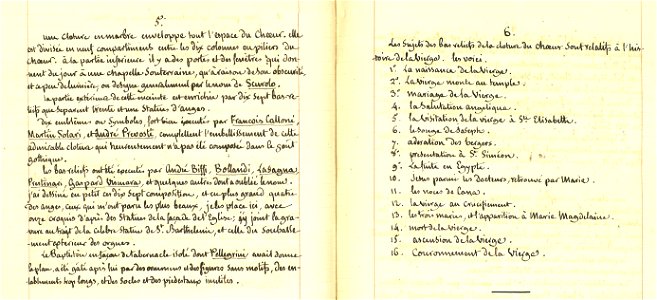 5.
une cloture en marbre enveloppe tout l'espace du Chœur. elle
est divisée en neuf compartiments entre les dix colonnes ou piliers du
chœur. à la partie inferieure il y a des portes et des fenêtres qui don-
nent du jour à une chapelle Souterraine, qu'à raison de son obscurité
et ce peu de lumière, on désigne generalement par le nom de Scurolo.
La partie extérieure de cette enceinte est enrichie par dix Sept bas-re-
liefs que Séparent trente et une Statues d'anges.
Dix emblêmes ou Symboles, fort bien executés par François Calloni,
Martin Solari, et André Prevosti, complettent l'embellissement de cette
admirable cloture qui heureusement n'a pas été composée dans le goût
gothique.
Les bas reliefs ont été executé par André Biffi, Bellandi, Lasagna,
Prestinari, Gaspard Vismara, et quelques autres dont a oublié le nom.
j'ai dessiné en petit ces dix Sept composition, et en plus grand quatre
des anges, ceux qui m'ont paru les plus beaux, je les place ici, avec
onze croquis d'après des Statues de la façade de l'Eglise; j'y joint la gra-
vure au trait de la célebre Statue de St. Barthelemie, et celle du Soubasse-
-ment exterieur des orgues.
Le Baptistère en façon de tabernacle isolé dont Pellegrini avait donné
le plan, a été gâté après lui par des ornemens et des figures sans motifs, des en-
tablements trop longs, et des Socles et des piédestaux inutiles.
6.
Les Sujets des bas reliefs de la cloture du chœur Sont relatifs à l'his-
toire de la Vierge. les voici.
1º. La naissance de la vierge.
2º. La Vierge monte au temple.
3º. mariage de la Vierge.
4. la Salutation angelique.
5. la Visitation de la vierge à Ste Elisabeth.
6. le Songe de Joseph.
7. adoration des bergers.
8º. présentation à St. Siméon.
9. La fuite en Egypte.
10. Jesus parmi les Docteurs, retrouvé par Marie.
11. les noces de Cana.
12. la vierge au Crucifiement.
13. les trois maries, et l'apparition à Marie Magdelaine.
14. mort de la vierge.
15. ascension de la Vierge.
16. Couronnement de la Vierge.